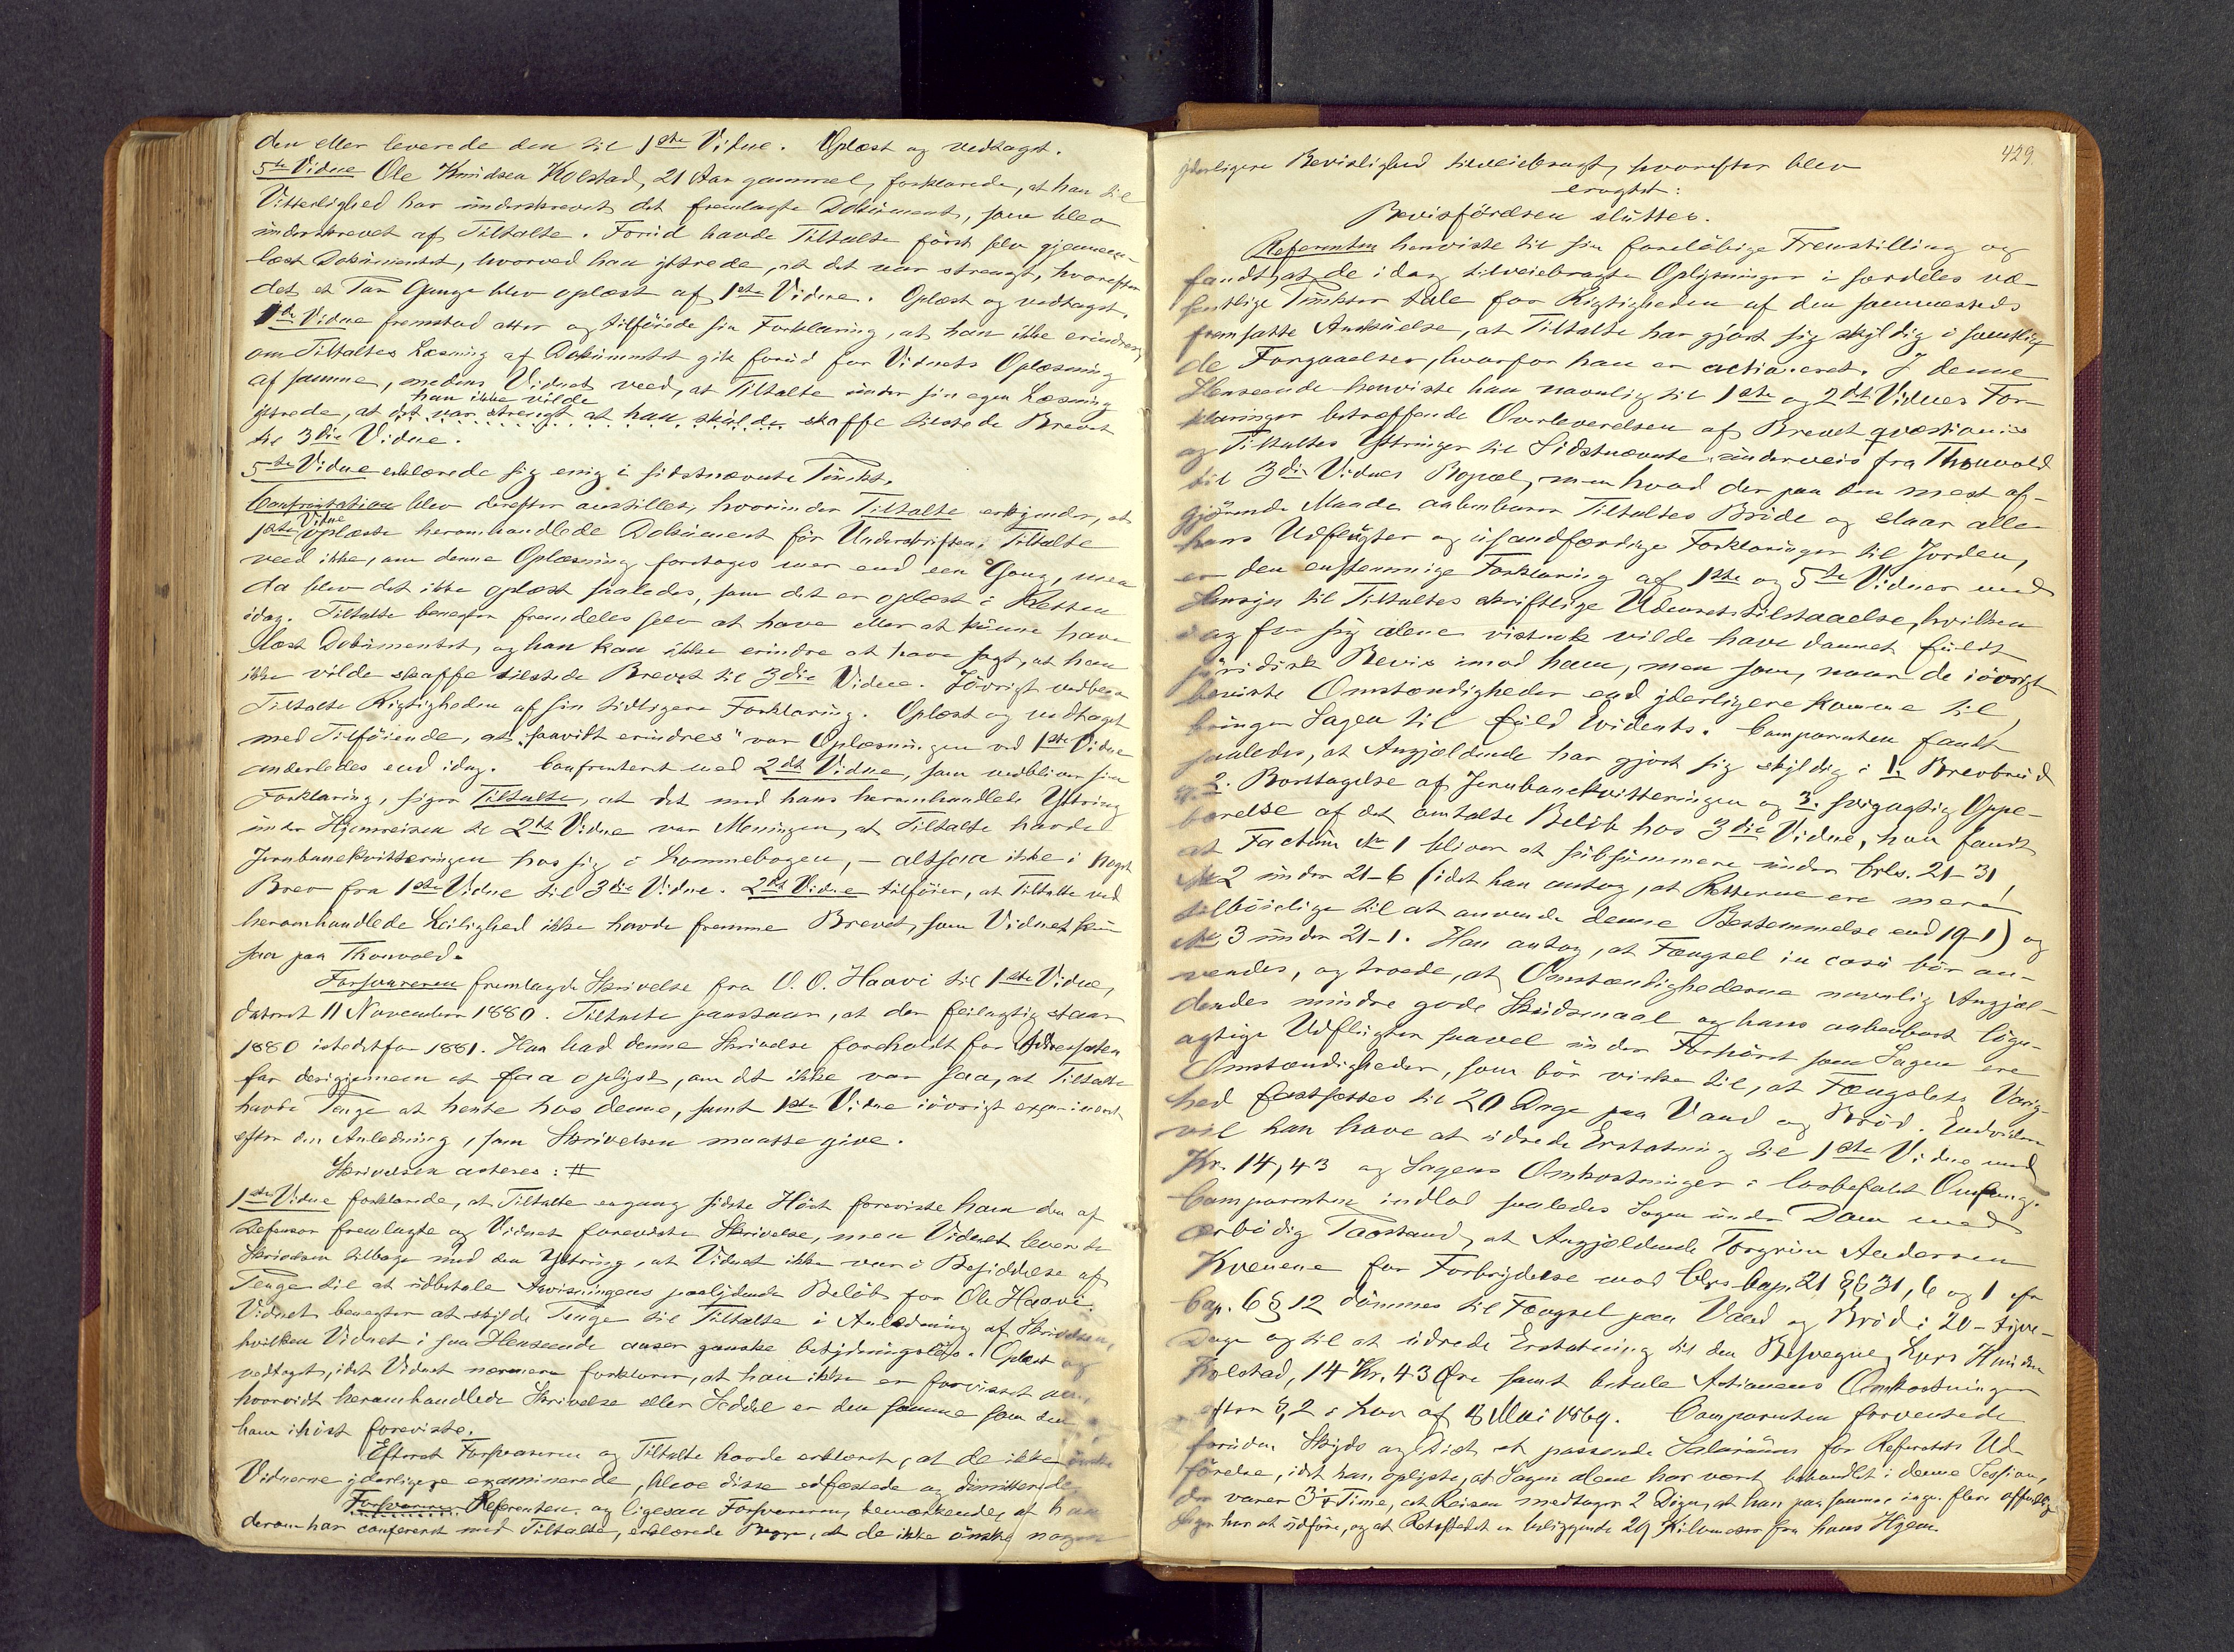 den eller leverede den til 1ste Vidne. Oplæst og vedtaget.
5te Vidne Ole Knudsen Kolstad, 21 Aar gammel, forklarede, at han til
Vitterlighed har underskrevet det fremlagte Dokument, som blev
underskrevet af Tiltalte. Forud havde Tiltalte først selv gjennem-
læst Dokumentet, hvorved han yttrede, at det var strengt, hvorefter
det et Par Gange blev oplæst af 1ste Vidne. Oplæst og vedtaget.
1ste Vidne fremstod atter og tilføiede sin Forklaring, at han ikke erindrer,
om Tiltaltes Læsning af Dokumentet gik forud for Vidnets Oplæsning
af samme, medens Vidnet veed, at Tiltalte under sin egen Læsning
han ikke vilde
yttrede, at det var strengt at han skulde skaffe tilstede Brevet
til 3die Vidne.
5te Vidne erklærede sig enig i sidstnævnte Punkt.
Confrontation blev derefter anstillet, hvorunder Tiltalte erkjender, at
1ste Vidne oplæste heromhandlede Dokument før Underskriften; Tiltalte
veed ikke, om denne Oplæsning foretoges mer end een Gang, men
da blev det ikke oplæst saaledes, som det er oplæst i Retten
idag. Tiltalte benegter fremdeles selv at have eller at kunne have
læst Dokumentet, og han kan ikke erindre at have sagt, at han
ikke vilde skaffe tilstede Brevet til 3die Vidne. Iøvrigt vedblev
Tiltalte Rigtigheden af sin tidligere Forklaring. Oplæst og vedtaget
med Tilføiende, at "saavidt erindres" var Oplæsningen ved 1ste Vidne
anderledes end idag. Confronteret med 2det Vidne, som vedbliver sin
Forklaring, siger Tiltalte, at det med hans heromhandlede Yttring
under Hjemreisen til 2det Vidne var Meningen, at Tiltalte havde
Jernbanekvitteringen hos sig i Lommebogen, – altsaa ikke i noget
Brev fra 1ste Vidne til 3die Vidne. 2det Vidne tilføier, at Tiltalte ved
heromhandlede Leilighed ikke havde fremme Brevet, som Vidnet kun
saa paa Thonvold.
Forsvareren fremlagde Skrivelse fra O. O. Haavi til 1ste Vidne,
dateret 11 November 1880. Tiltalte paastaar, at der feilagtig staar
1880 istedetfor 1881. Han bad denne Skrivelse foreholdt for Adressaten
for derigjennem at faa oplyst, om det ikke var saa, at Tiltalte
havde Penge at hente hos denne, samt 1ste Vidne iøvrigt examineret
efter den Anledning, som Skrivelsen maatte give.
Skrivelsen acteres: #
1ste Vidne forklarede, at Tiltalte engang sidste Høst foreviste ham den af
Defensor fremlagte og Vidnet foreviste Skrivelse, men Vidnet leverede
Skrivelsen tilbage med den Yttring, at Vidnet ikke var i Besiddelse af
Penge til at udbetale Anvisningens paalydende Beløb for Ole Haavi.
Vidnet benegter at skylde Penge til Tiltalte i Anledning af Skrivelsen,
hvilken Vidnet i saa Henseende anser ganske betydningsløs. Oplæst og
vedtaget, idet Vidnet nærmere forklarer, at han ikke er forvisset om
hvorvidt heromhandlede Skrivelse eller Seddel er den samme som den
ham ihøst foreviste.
Efterat Forsvareren og Tiltalte havde erklæret, at de ikke ønske
Vidnerne yderligere examinerede, bleve disse edfæstede og dimitterede.
Forsvareren Referenten og ligesaa Forsvareren, bemærkende, at han
derom har confereret med Tiltalte, erklærede Begge, at de ikke ønske nogen
429.
yderligere Bevislighed tilveiebragt, hvorefter blev
eragtet:
Bevisførelsen sluttes.
Referenten henviste til sin foreløbige Fremstilling og
fandt, at de idag tilveiebragte Oplysninger i særdeles væ-
sentlige Punkter tale for Rigtigheden af den sammesteds
fremsatte Anskuelse, at Tiltalte har gjort sig skyldig i samtlige
de Forgaaelser, hvorfor han er actioneret. I denne
Henseende henviste han navnlig til 1ste og 2det Vidners For-
klaringer betræffende Overleverelsen af Brevet qvæstionis
og Tiltaltes Yttringer til Sidstnævnte underveis fra Thonvold
til 3die Vidnes Bopæl, men hvad der paa den mest af-
gjørende Maade aabenbarer Tiltaltes Brøde og slaar alle
hans Udflugter og usandfærdige Forklaringer til Jorden,
er den enstemmige Forklaring af 1ste og 5te Vidner med
Hensyn til Tiltaltes skriftlige Udenretstilstaaelse, hvilken
i og for sig alene vistnok vilde have dannet fuldt
juridisk Bevis imod ham, men som, naar de iøvrigt
beviste Omstændigheder end yderligere komme til,
bringer Sagen til fuld Evidents. Comparenten fandt
saaledes, at Angjældende har gjort sig skyldig i 1. Brevbrud
2. Borttagelse af Jernbanekvitteringen og 3. svigagtig Oppe-
børelse af det omtalte Beløb hos 3die Vidne, han fandt
at Factum No 1 bliver at subsummere under Crls. 21-31,
No 2 under 21-6 (idet han antog, at Retterne ere mere
tilbøielige til at anvende denne Bestemmelse end 19-1) og
No 3 under 21-1. Han antog, at Fængsel in casu bør an-
vendes, og troede, at Omstændighederne navnlig Angjæl-
dendes mindre gode Skudsmaal og hans aabenbart løgn-
agtige Udflugter saavel under Forhøret som Sagen ere
Omstændigheder, som bør virke til, at Fængslets Varig-
hed fastsættes til 20 Dage paa Vand og Brød. Endvidere
vil han have at udrede Erstatning til 1ste Vidne med
Kr. 14,43 og Sagens Omkostninger i lovbefalet Omfang.
Comparenten indlod saaledes Sagen under Dom med
ærbødig Paastand, at Angjældende Torgrim Andersen
Kvenene for Forbrydelse mod Crls. Cap. 21 §§ 31, 6 og 1 cfr
Cap. 6 § 12 dømmes til Fængsel paa Vand og Brød i 20 – tyve –
Dage og til at udrede Erstatning til den Besvegne, Lars Knudsen
Kolstad, 14 Kr. 43 Øre samt betale Actionens Omkostninger
efter § 2 i Lov af 8 Mai 1869. Comparenten forventede
foruden Skyds og Diæt et passende Salarium for Referatets Ud-
førelse, idet han oplyste, at Sagen alene har været behandlet i denne Session,
der varer Time, at Reisen medtager 2 Dage, at han paa samme ingen flere offentlige
Sager har at udføre, og at Retsstedet er beliggende 29 Kilometer fra hans Hjem.